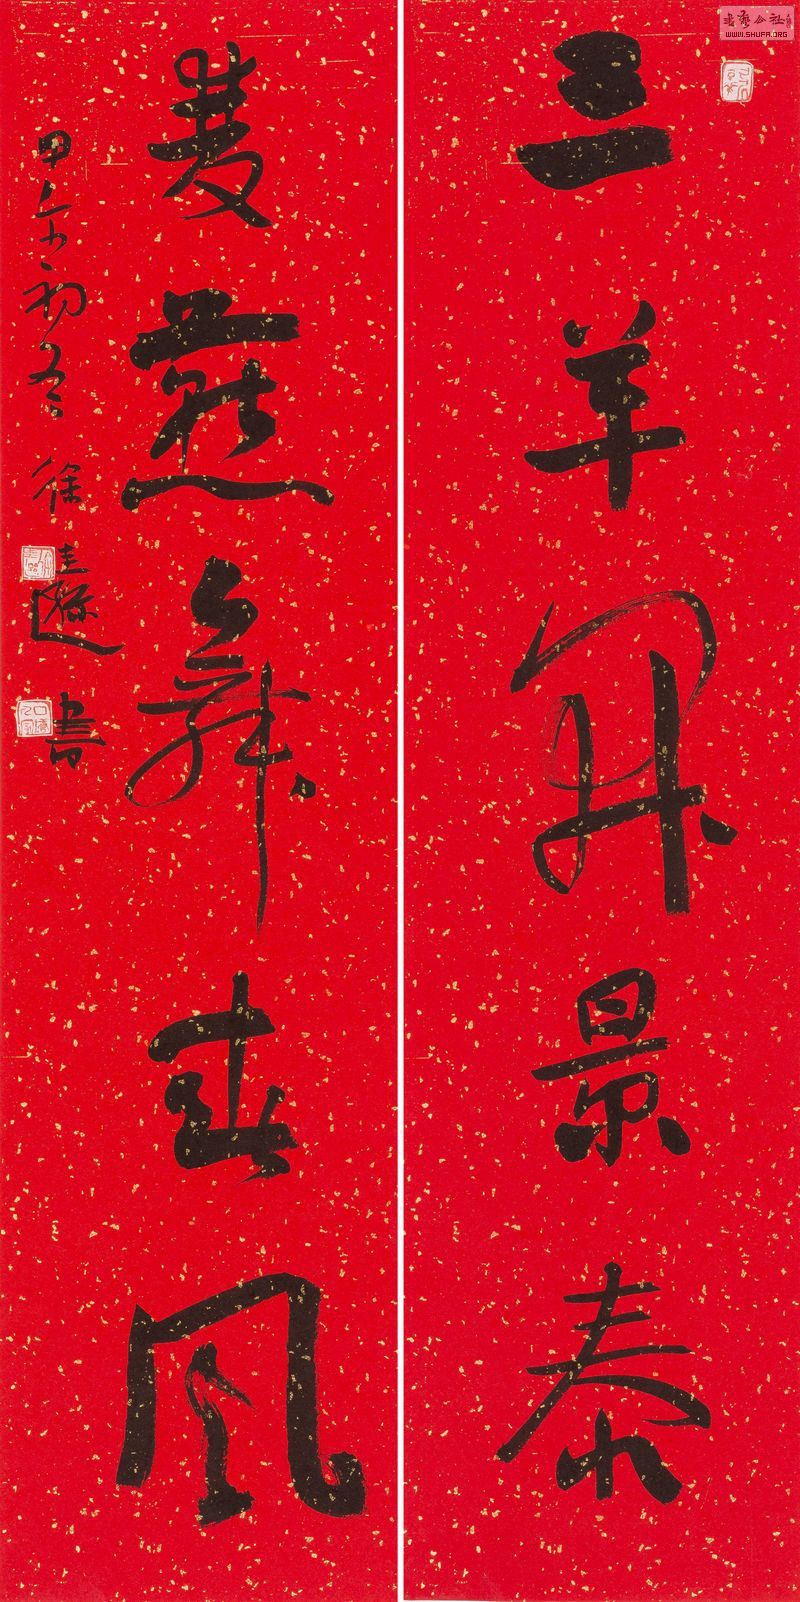 三羊开景泰
双燕舞春风
甲午初冬 徐圭逊 书
书艺公社
WWW.SHUFA.ORG